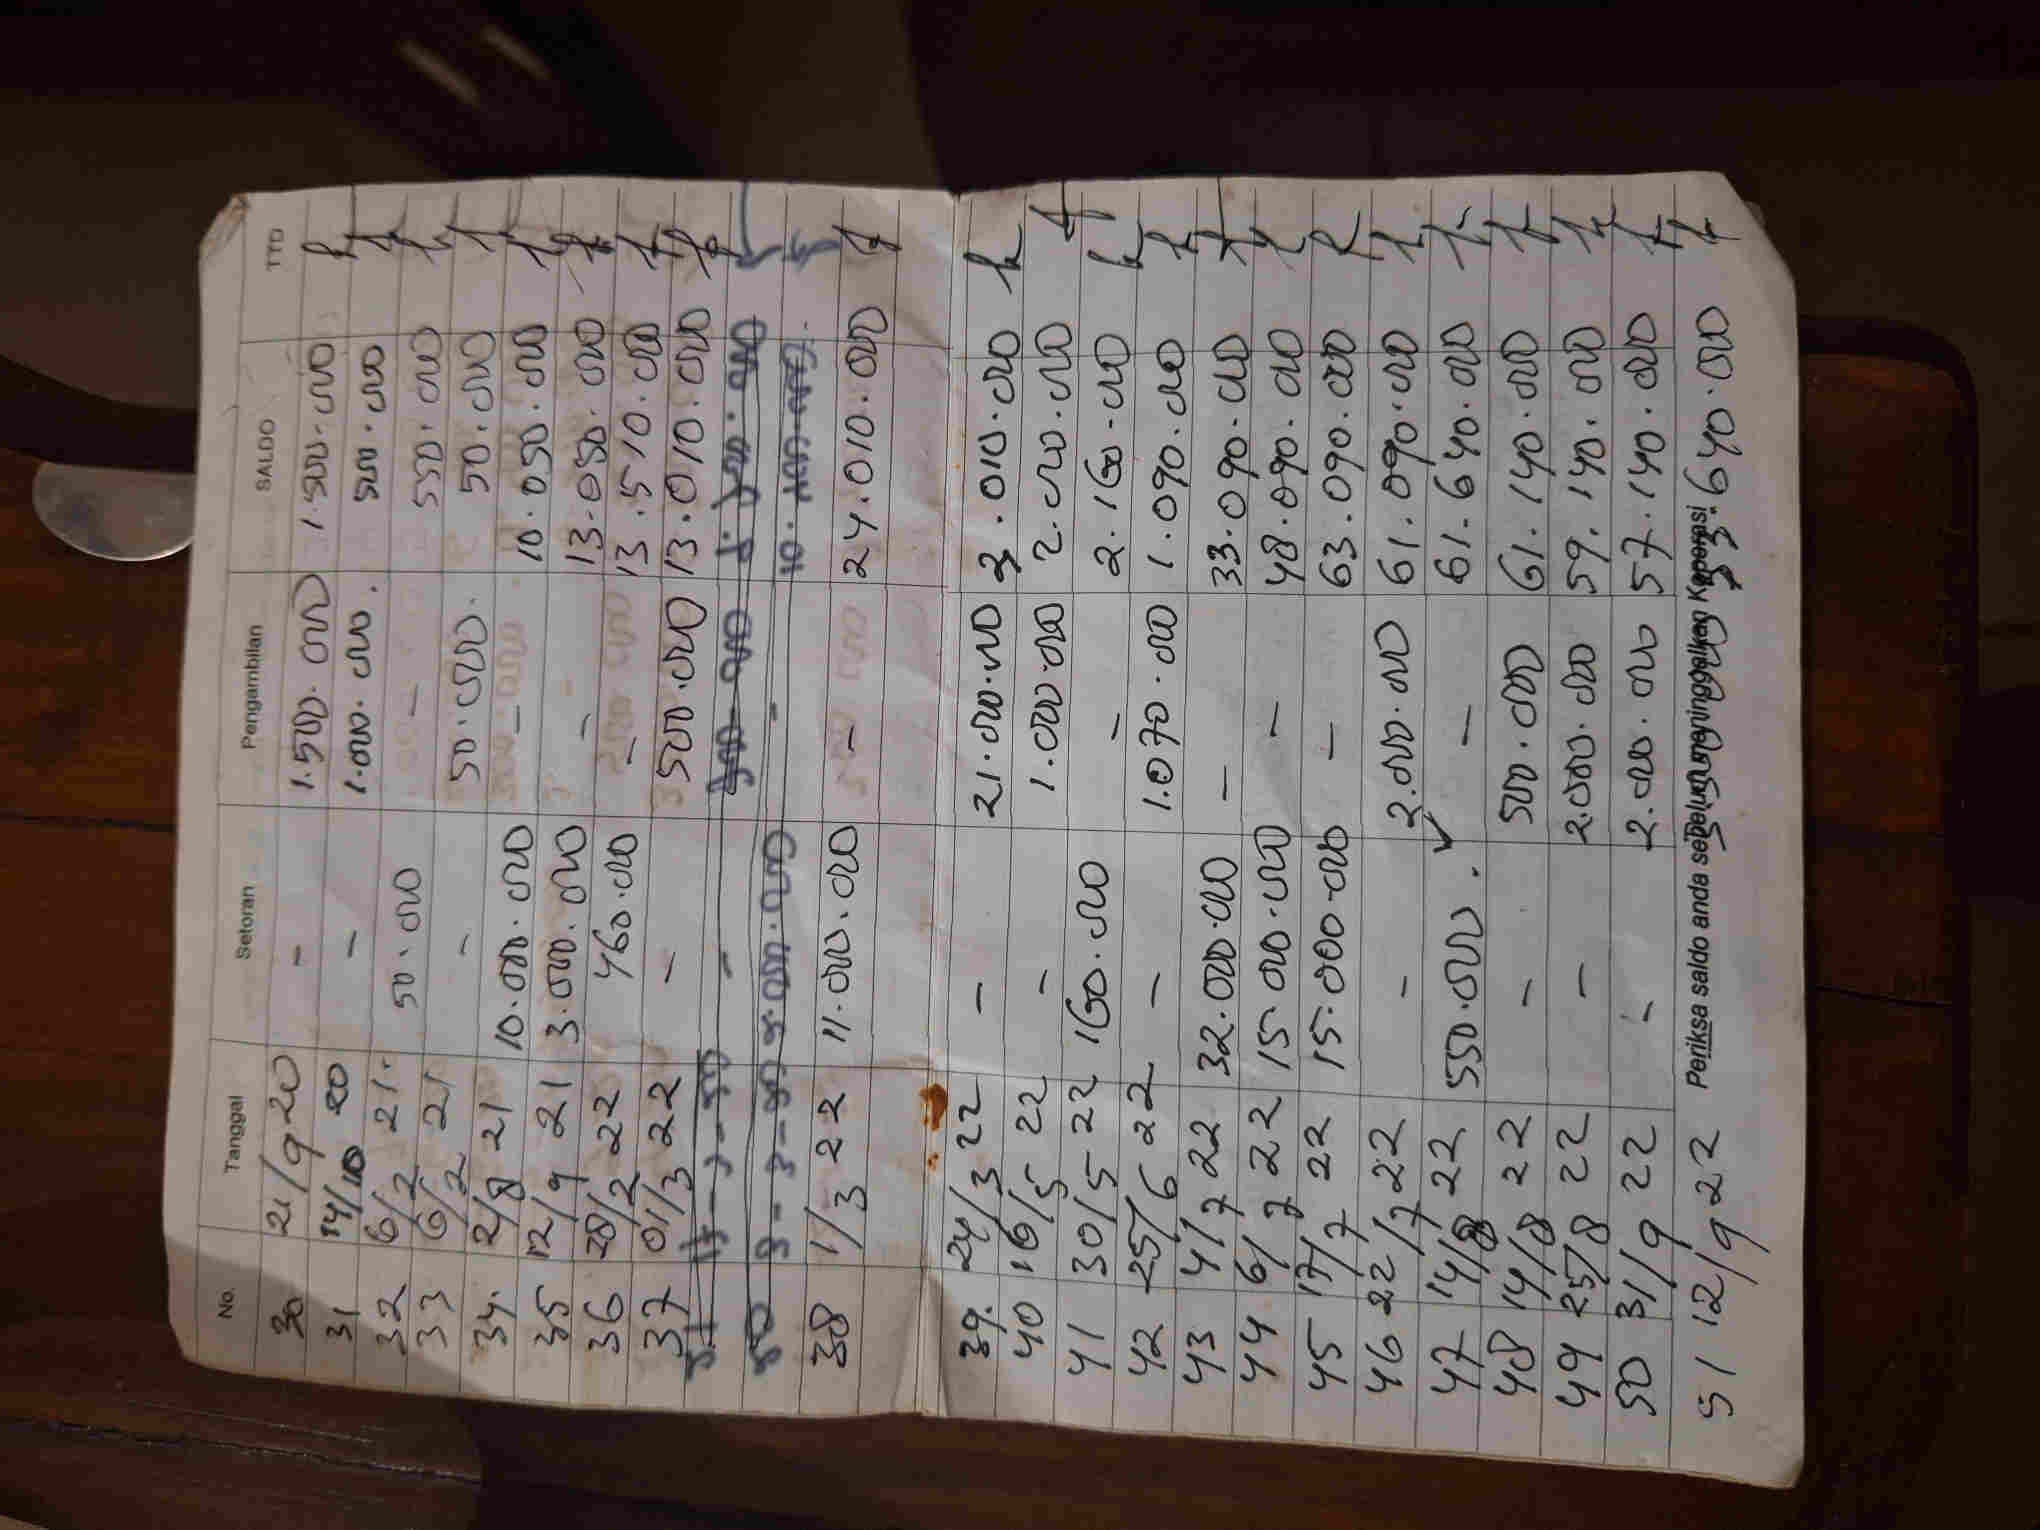 No. Tanggal Setoran Pengambilan SALDO TTD
30 21/9 20 - 1.500.000 1.500.000
31 14/10 20 - 1.000.000. 500.000
32 6/2 21. 50.000 - 550.000
33 6/2 21 - 50.000. 50.000
34. 2/8 21 10.000.000 - 10.050.000
35 12/9 21 3.000.000 - 13.050.000
36 28/2 22 460.000 - 13.510.000
37 01/3 22 - 500.000 13.010.000
38 1/3 22 11.000.000 - 24.010.000
39. 24/3 22 - 21.000.000 3.010.000
40 16/5 22 - 1.000.000 2.000.000
41 30/5 22 160.000 - 2.160.000
42 25/6 22 - 1.070.000 1.090.000
43 4/7 22 32.000.000 - 33.090.000
44 6/7 22 15.000.000 - 48.090.000
45 17/7 22 15.000.000 - 63.090.000
46 22/7 22 - 2.000.000 61.090.000
47 14/8 22 550.000. - 61.640.000
48 14/8 22 - 500.000 61.140.000
49 25/8 22 - 2.000.000 59.140.000
50 31/9 22 - 2.000.000 57.140.000
Periksa saldo anda sebelum meninggalkan Koperasi
51 12/9 22 53.640.000